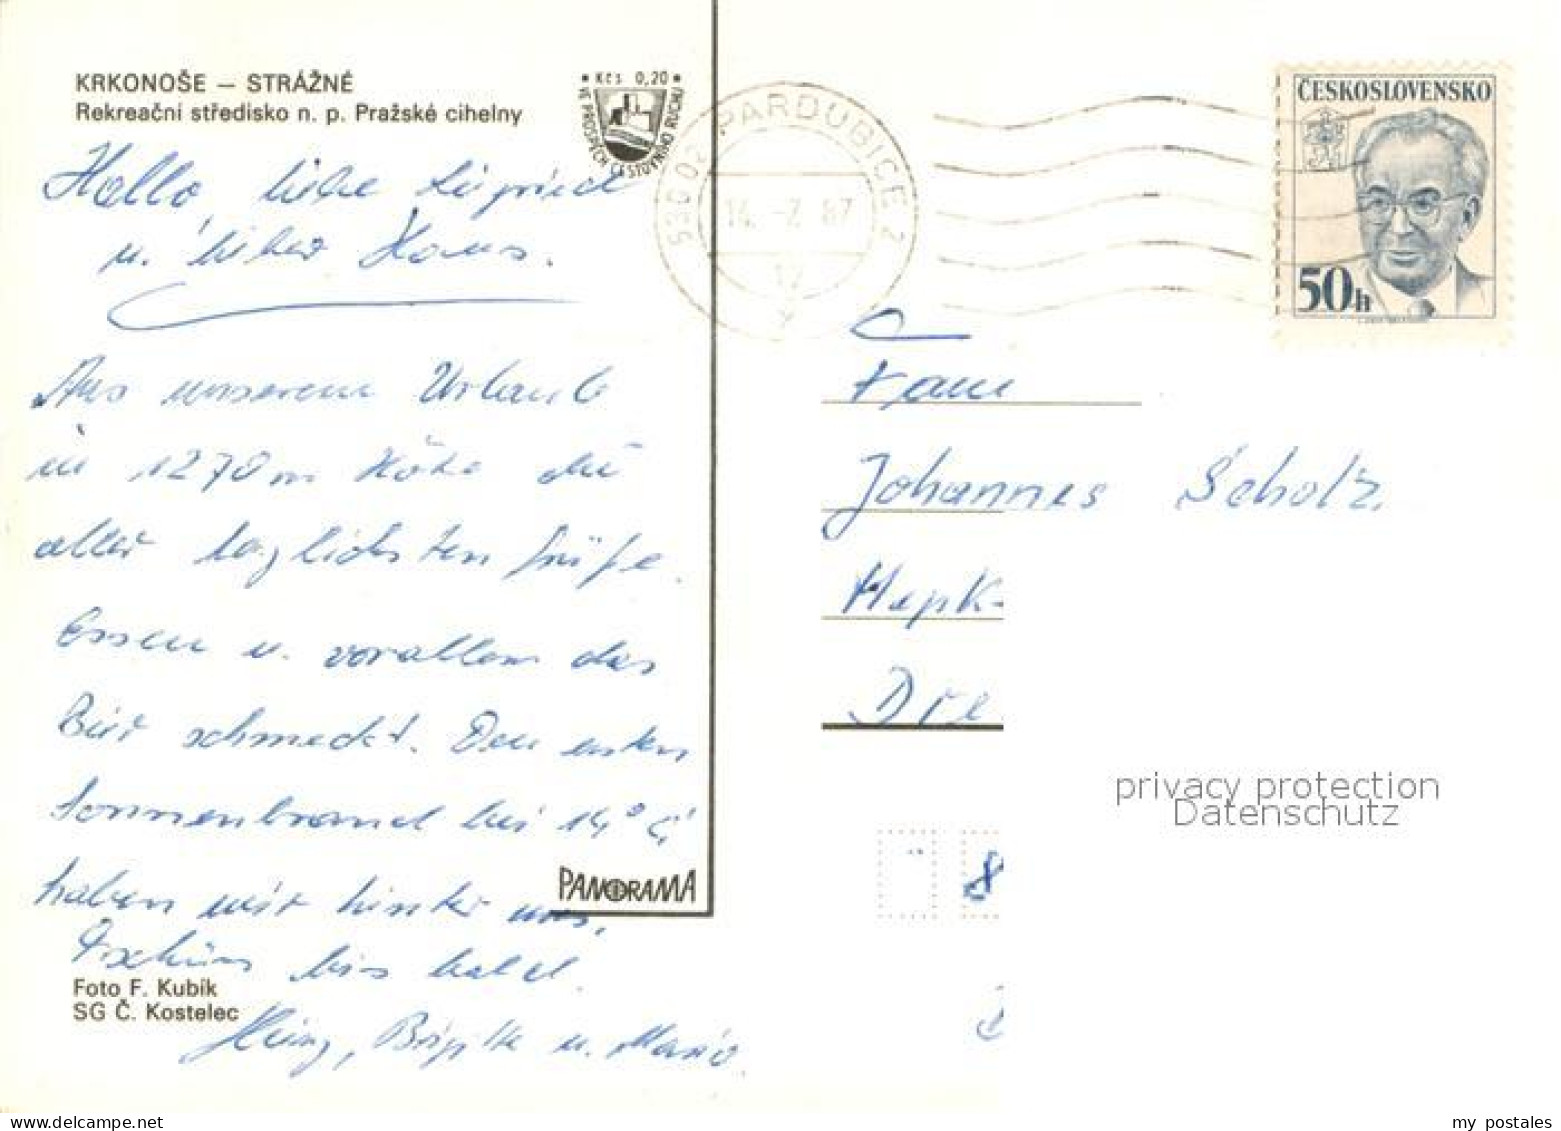 KRKONOŠE – STRÁŽNÉ
Rekreační středisko n. p. Pražské cihelny
• Kčs 0,20 •
VE PROSPĚCH CESTOVNÍHO RUCHU
Hallo, liebe Sigried
u. lieber Hans.
Aus unserem Urlaub
in 1270 m Höhe die
aller herzlichsten Grüße.
Essen u. vorallem das
Bier schmeckt. Den ersten
Sonnenbrand bei 14° C
haben wir hinter uns.
Tschüss bis bald.
Heinz, Brigitte u. Mario
PANORAMA
Foto F. Kubík
SG Č. Kostelec
530 02 PARDUBICE 2
14. -7. 87
12
ČESKOSLOVENSKO
50h
Fam
Johannes Scholz.
Hepk-
Dre
8
privacy protection
Datenschutz
my postales